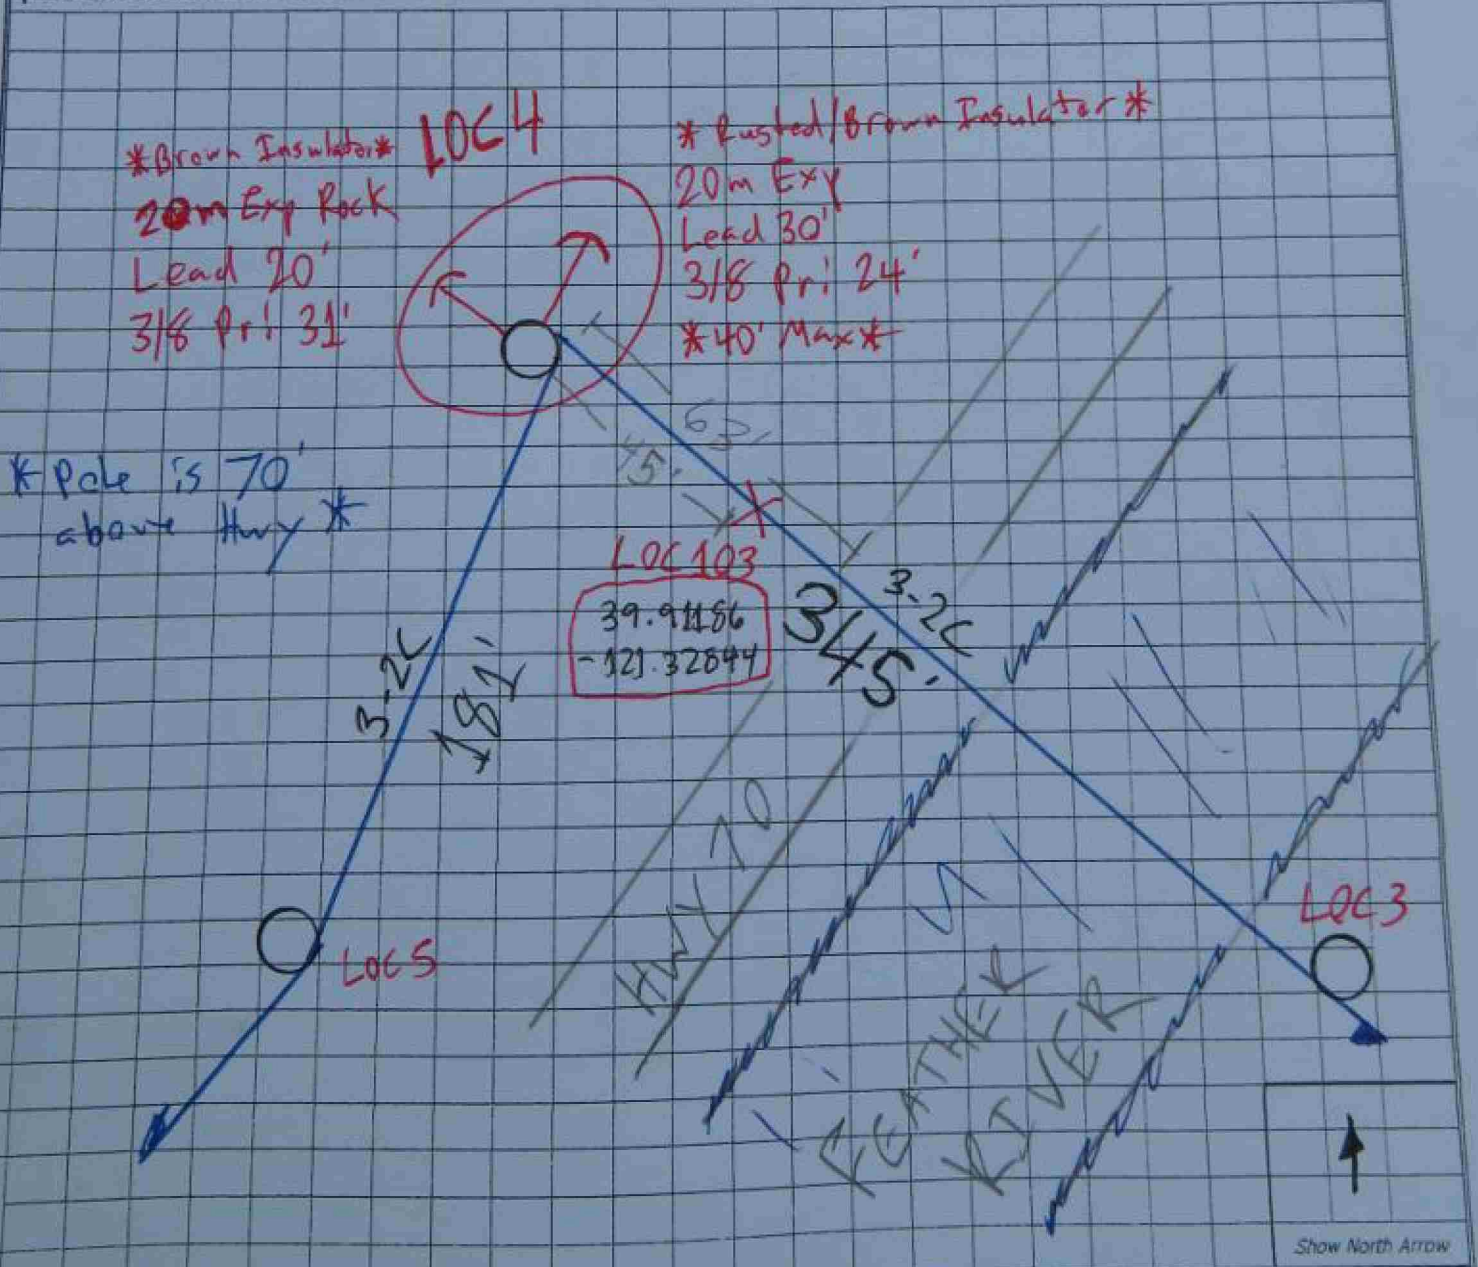 LOC 4
*Brown Insulator*
20m Exp Rock
Lead 20'
3/8 Pri 31'
*Rusted/Brown Insulator*
20m Exy
Lead 30'
3/8 Pri 24'
*40' Max*
*Pole is 70'
above Hwy*
63'
45'
LOC 103
39.91186
-121.32844
345'
3-2C
3-2C
181'
HWY 70
LOC 5
LOC 3
FEATHER
RIVER
Show North Arrow